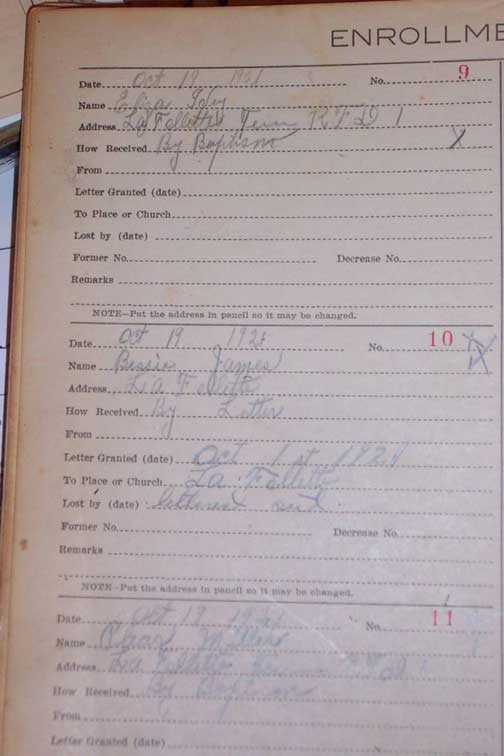 ENROLLME
Date Oct 19 1921 No. 9
Name Eliza
Address La Follette Tenn R F D 1
How Received By Baptism X
From
Letter Granted (date)
To Place or Church
Lost by (date)
Former No. Decrease No.
Remarks
NOTE—Put the address in pencil so it may be changed.
Date Oct 19 1921 No. 10
Name Bessie James
Address La Follette
How Received By Letter
From
Letter Granted (date) Oct 1st
To Place or Church La Follette
Lost by (date)
Former No. Decrease No.
Remarks
NOTE—Put the address in pencil so it may be changed.
Date Oct 19 No. 11
Name
Address La Follette
How Received By Baptism
From
Letter Granted (date)